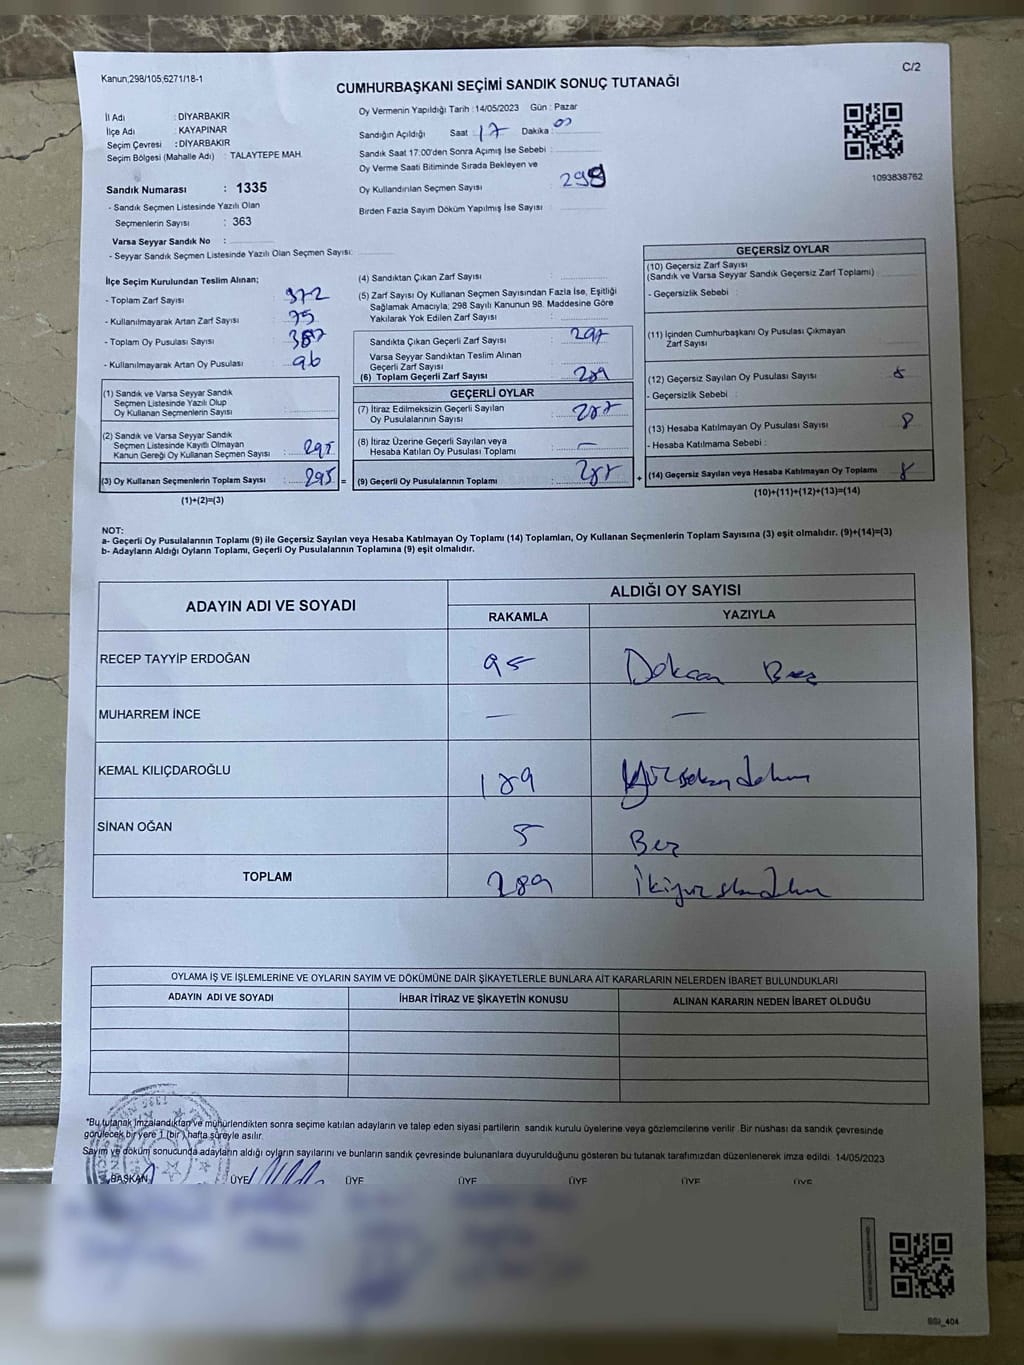 Kanun,298/105,6271/18-1
C/2
CUMHURBAŞKANI SEÇİMİ SANDIK SONUÇ TUTANAĞI
İl Adı : DİYARBAKIR
İlçe Adı : KAYAPINAR
Seçim Çevresi : DİYARBAKIR
Seçim Bölgesi (Mahalle Adı) : TALAYTEPE MAH.
Sandık Numarası : 1335
- Sandık Seçmen Listesinde Yazılı Olan
Seçmenlerin Sayısı : 363
Varsa Seyyar Sandık No :
- Seyyar Sandık Seçmen Listesinde Yazılı Olan Seçmen Sayısı:
Oy Vermenin Yapıldığı Tarih : 14/05/2023 Gün : Pazar
Sandığın Açıldığı Saat : 17 Dakika : 00
Sandık Saat 17:00'den Sonra Açımış İse Sebebi :
Oy Verme Saati Bitiminde Sırada Bekleyen ve
Oy Kullandırılan Seçmen Sayısı :
Birden Fazla Sayım Döküm Yapılmış İse Sayısı :
1093838762
İlçe Seçim Kurulundan Teslim Alınan;
- Toplam Zarf Sayısı : 372
- Kullanılmayarak Artan Zarf Sayısı : 75
- Toplam Oy Pusulası Sayısı :
- Kullanılmayarak Artan Oy Pusulası : 96
(1) Sandık ve Varsa Seyyar Sandık
Seçmen Listesinde Yazılı Olup
Oy Kullanan Seçmenlerin Sayısı :
(2) Sandık ve Varsa Seyyar Sandık
Seçmen Listesinde Kayıtlı Olmayan
Kanun Gereği Oy Kullanan Seçmen Sayısı : 295
(3) Oy Kullanan Seçmenlerin Toplam Sayısı : 295 =
(1)+(2)=(3)
(4) Sandıktan Çıkan Zarf Sayısı :
(5) Zarf Sayısı Oy Kullanan Seçmen Sayısından Fazla İse, Eşitliği
Sağlamak Amacıyla; 298 Sayılı Kanunun 98. Maddesine Göre
Yakılarak Yok Edilen Zarf Sayısı :
Sandıkta Çıkan Geçerli Zarf Sayısı : 297
Varsa Seyyar Sandıktan Teslim Alınan
Geçerli Zarf Sayısı :
(6) Toplam Geçerli Zarf Sayısı : 289
GEÇERLİ OYLAR
(7) İtiraz Edilmeksizin Geçerli Sayılan
Oy Pusulalarının Sayısı : 287
(8) İtiraz Üzerine Geçerli Sayılan veya
Hesaba Katılan Oy Pusulası Toplamı : —
(9) Geçerli Oy Pusulalarının Toplamı : 287 +
GEÇERSİZ OYLAR
(10) Geçersiz Zarf Sayısı
(Sandık ve Varsa Seyyar Sandık Geçersiz Zarf Toplamı) :
- Geçersizlik Sebebi :
(11) İçinden Cumhurbaşkanı Oy Pusulası Çıkmayan
Zarf Sayısı :
(12) Geçersiz Sayılan Oy Pusulası Sayısı : 8
- Geçersizlik Sebebi :
(13) Hesaba Katılmayan Oy Pusulası Sayısı : 8
- Hesaba Katılmama Sebebi :
(14) Geçersiz Sayılan veya Hesaba Katılmayan Oy Toplamı : 8
(10)+(11)+(12)+(13)=(14)
NOT:
a- Geçerli Oy Pusulalarının Toplamı (9) ile Geçersiz Sayılan veya Hesaba Katılmayan Oy Toplamı (14) Toplamları, Oy Kullanan Seçmenlerin Toplam Sayısına (3) eşit olmalıdır. (9)+(14)=(3)
b- Adayların Aldığı Oyların Toplamı, Geçerli Oy Pusulalarının Toplamına (9) eşit olmalıdır.
ADAYIN ADI VE SOYADI
ALDIĞI OY SAYISI
RAKAMLA YAZIYLA
RECEP TAYYİP ERDOĞAN 95 Doksan Beş
MUHARREM İNCE — —
KEMAL KILIÇDAROĞLU 189 Yüzseksendokuz
SİNAN OĞAN 5 Beş
TOPLAM 289 İkiyüzseksendokuz
OYLAMA İŞ VE İŞLEMLERİNE VE OYLARIN SAYIM VE DÖKÜMÜNE DAİR ŞİKAYETLERLE BUNLARA AİT KARARLARIN NELERDEN İBARET BULUNDUKLARI
ADAYIN ADI VE SOYADI İHBAR İTİRAZ VE ŞİKAYETİN KONUSU ALINAN KARARIN NEDEN İBARET OLDUĞU
*Bu tutanak imzalandıktan ve mühürlendikten sonra seçime katılan adayların ve talep eden siyasi partilerin sandık kurulu üyelerine veya gözlemcilerine verilir. Bir nüshası da sandık çevresinde
görülecek bir yere 1 (bir) hafta süreyle asılır.
Sayım ve döküm sonucunda adayların aldığı oyların sayılarını ve bunların sandık çevresinde bulunanlara duyurulduğunu gösteren bu tutanak tarafımızdan düzenlenerek imza edildi. 14/05/2023
BAŞKAN ÜYE ÜYE ÜYE ÜYE ÜYE ÜYE